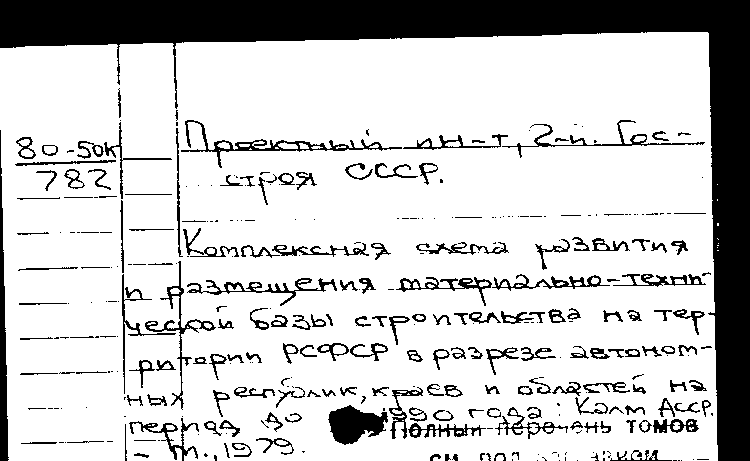 80-50к
782
Проектный ин-т, 2-й. Гос-
строя СССР.
Комплексная схема развития
и размещения материально-техни-
ческой базы строительства на тер-
ритории РСФСР в разрезе автоном-
ных республик, краев и областей на
период до 1990 года: Калм АССР.
Полный перечень томов
- М., 1979.
см. под